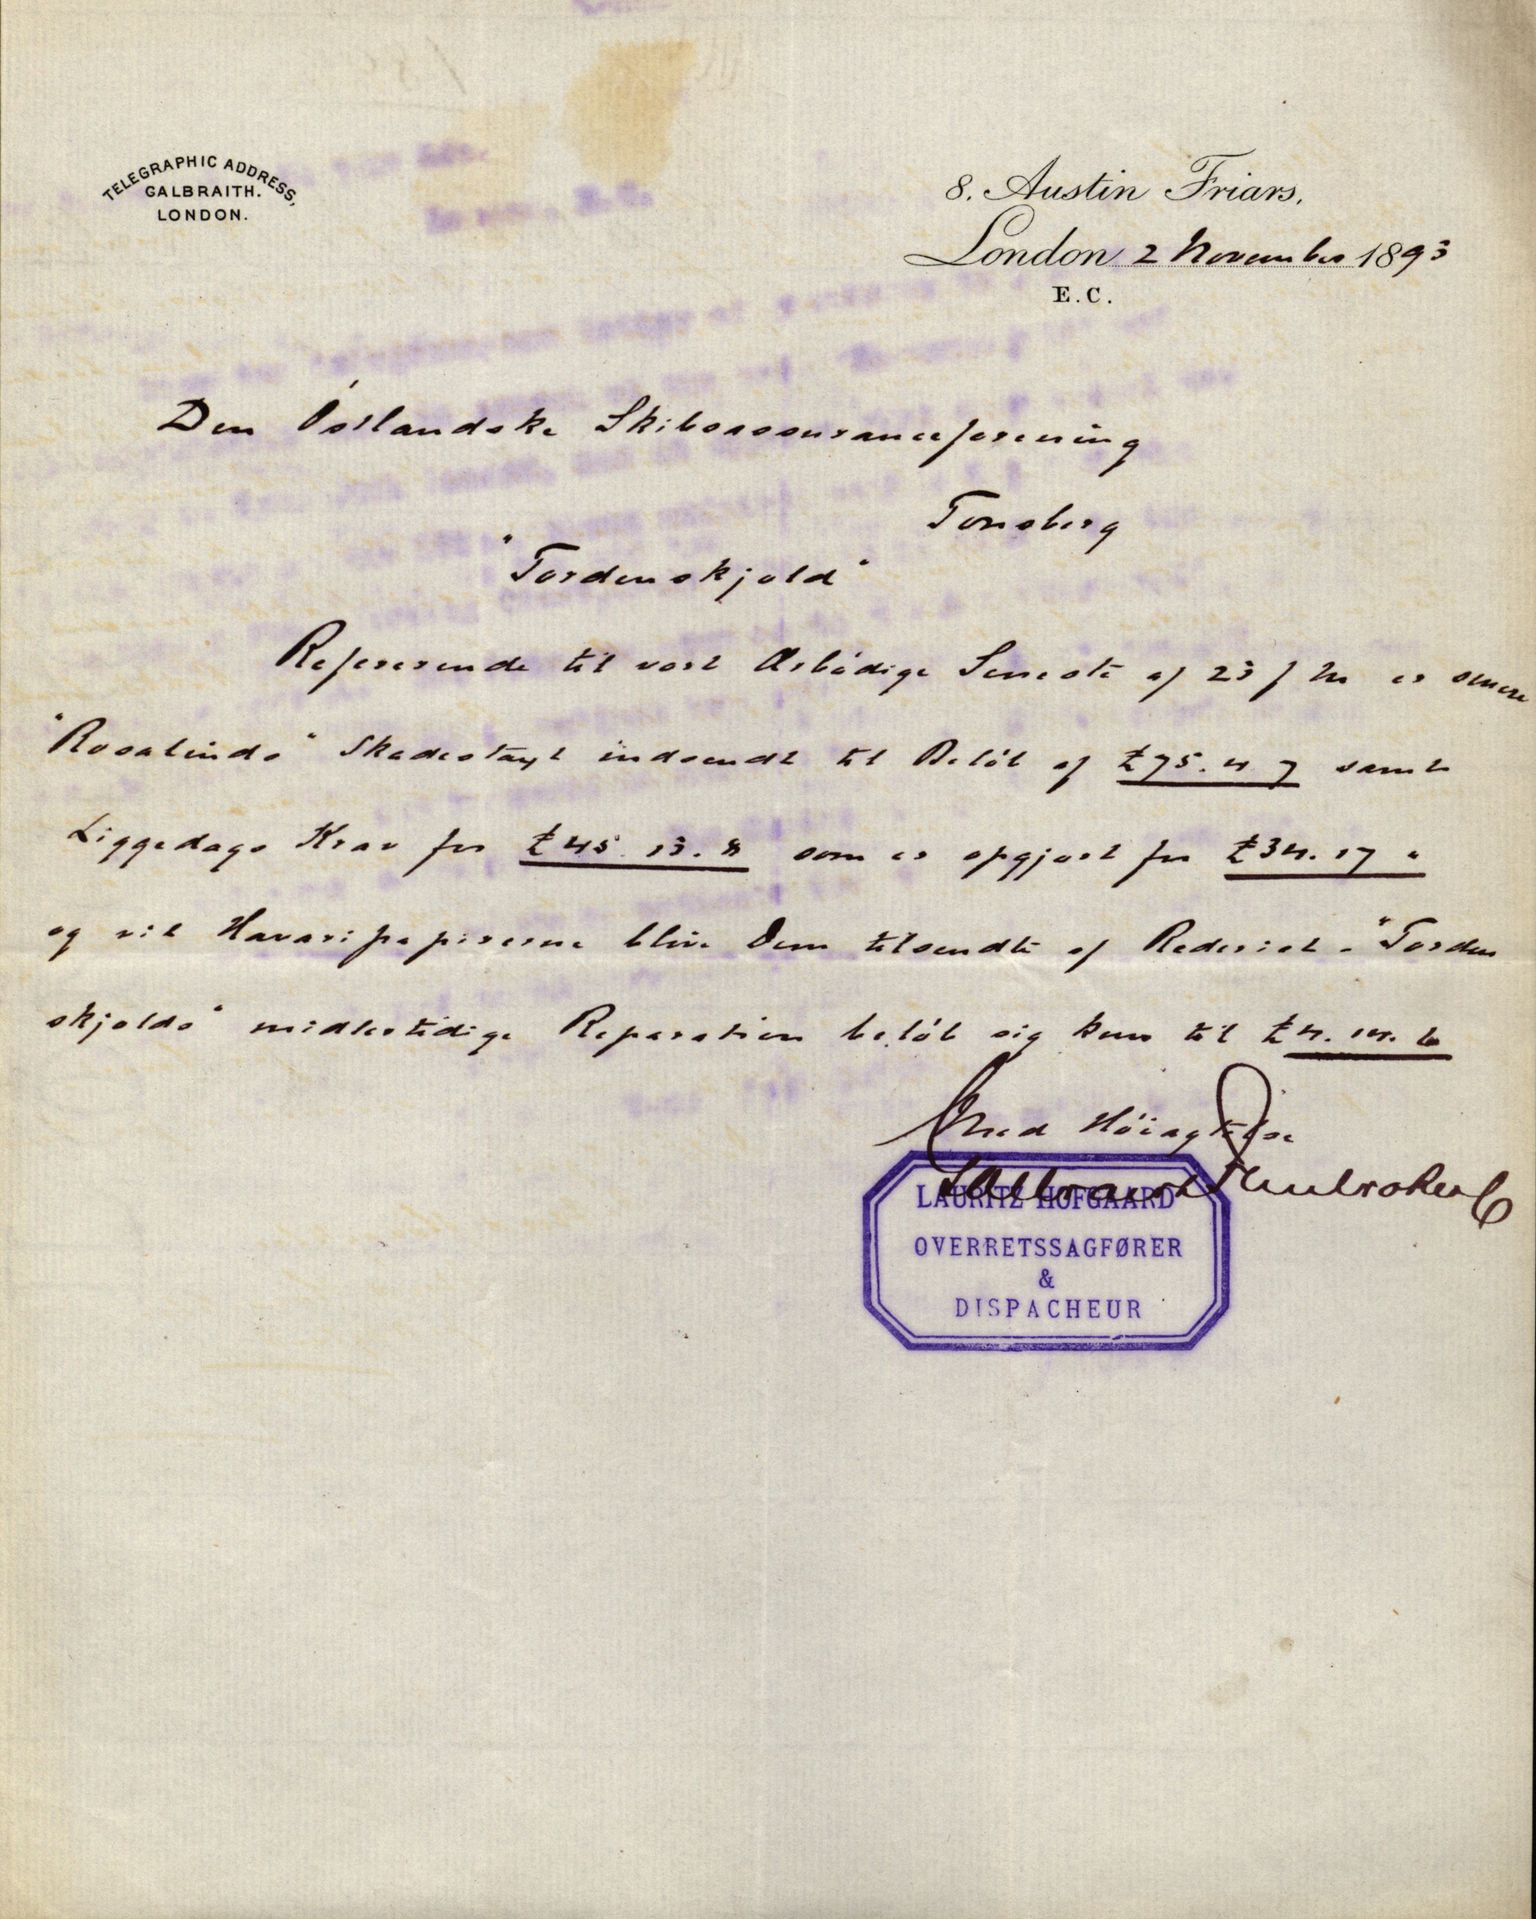 TELEGRAPHIC ADDRESS,
GALBRAITH.
LONDON.
8. Austin Friars,
London 2 November 1893
E.C.
Den Östlandske Skibsassuranceforening
Tonsberg
"Tordenskjold"
Refererende til vort Ærbödige Seneste af 23 f M er senere
"Rosalinds" Skadestaxt indsendt til Belöb af £75.4.7 samt
Liggedags Krav for £45.13.8 som er opgjort for £34.17 "
og vil Havaripapirerne blive Dem tilsendte af Rederiet. "Torden
skjolds" midlertidige Reparation belöb sig kun til £4.14.6
Med Höiagtelse
Galbraith Pembroke & Co
LAURITZ HOFGAARD
OVERRETSSAGFØRER
&
DISPACHEUR